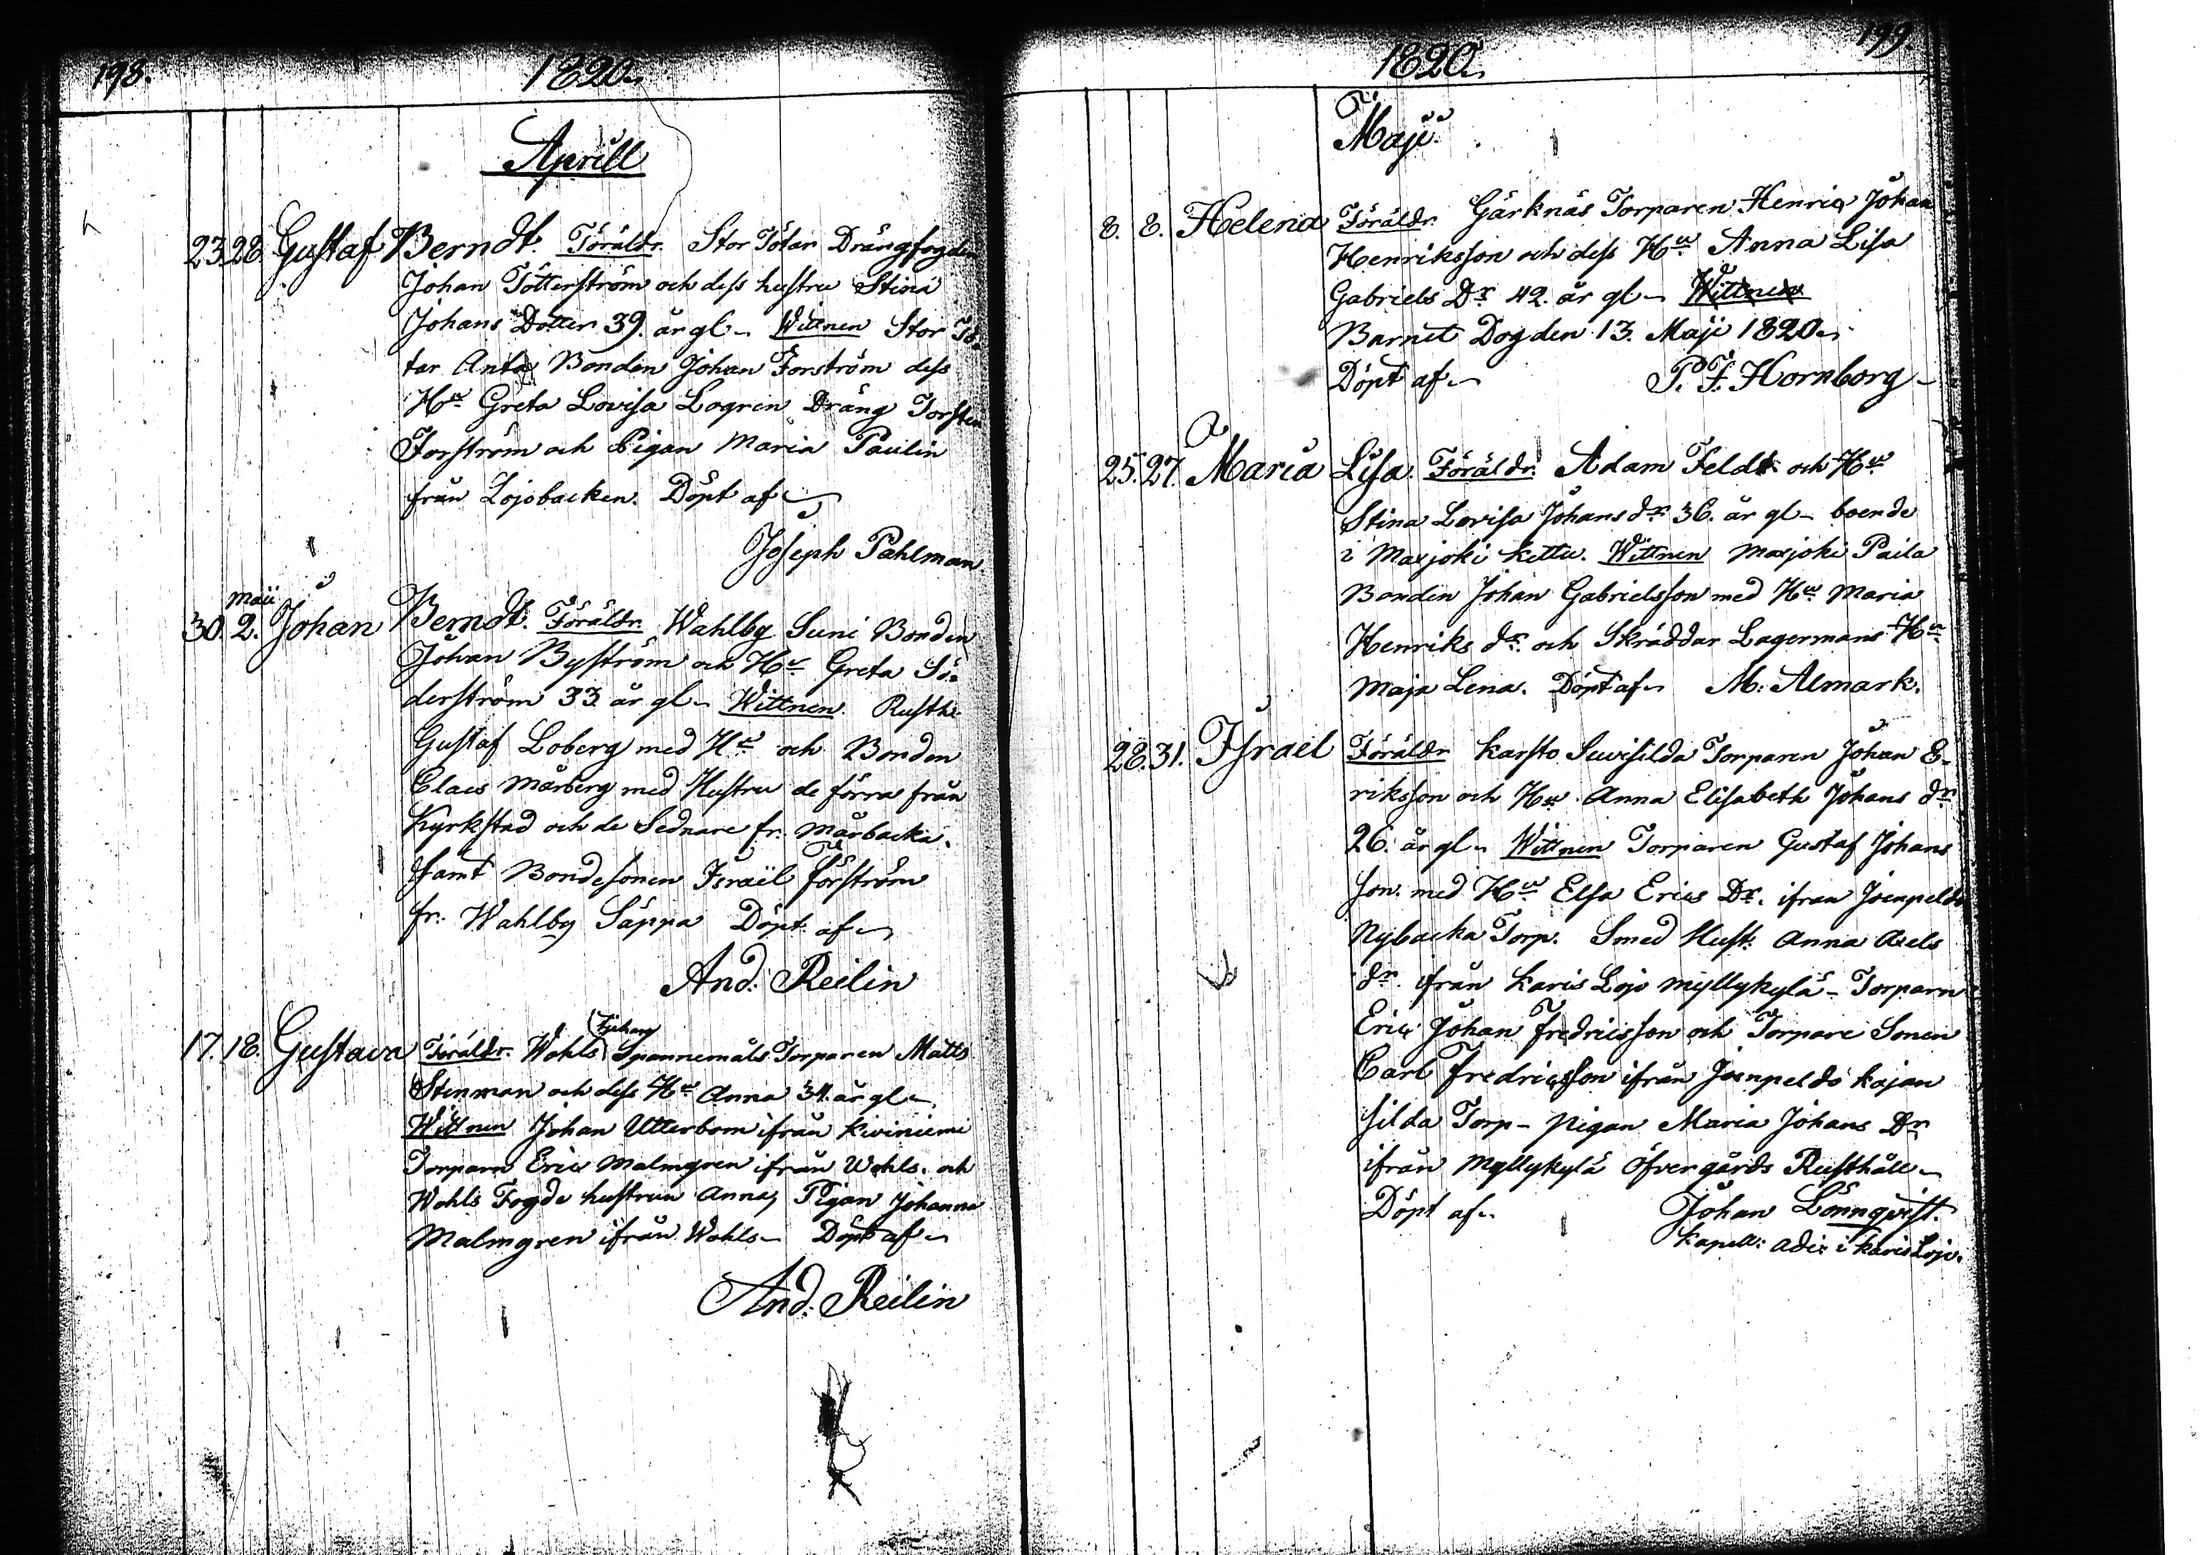 198.
1820.
Aprill
23. 28. Gustaf Berndt. Föräldr. Stor Tötar Drängfogden
Johan Tötterström och dess hustru Stina
Johans Dotter 39. år gl. Wittnen Stor Tö-
tar Bonden Johan Forström dess
Hu Greta Lovisa Logren Dräng Torsten
Forström och Pigan Maria Paulin
från Lojobacken. Döpt af
Joseph Pahlman.
Maii
30. 2. Johan Berndt. Föräldr. Wahlby Suni Bonden
Johan Byström och Hu Greta Sö-
derström 33 år gl. Wittnen. Rusth.
Gustaf Loberg med Hu och Bonden
Claes Mårberg med Hustru de förra från
Kyrkstad och de Sednare fr. Mårbacka.
samt Bondesonen Israël Förström
fr. Wahlby Säppa Döpt af
And: Reilin
17. 18. Gustava Föräldr. Wohls Spannemåls Torparen Matts
Stenman och dess Hu Anna 34. år gl.
Wittnen Johan Utterbom ifrån Kiviniemi
Torparn Eric Malmgren ifrån Wohls. och
Wohls Fogde hustrun Anna, Pigan Johanna
Malmgren ifrån Wohls Döpt af
And: Reilin
199.
1820.
Maji
8. 8. Helena Föräldr. Gärknäs Torparen Henric Johan
Henriksson och dess Hu Anna Lisa
Gabriels Dr 42. år gl. Wittnen
Barnet Dog den 13. Maji 1820.
Döpt af P. F. Hornborg
25. 27. Maria Lisa. Föräldr. Adam Feldt och Hu
Stina Lovisa Johans dr 36. år gl. boende
i Maxjoki Kettu. Wittnen Maxjoki Paila
Bonden Johan Gabrielsson med Hu Maria
Henriks dr. och Skräddar Lagermans Hu
Maja Lena. Döpt af M. Almark.
28. 31. Israel Föräldr Karsto Suvisilda Torparen Johan E-
riksson och Hu. Anna Elisabeth Johans dr
26. år gl. Wittnen Torparen Gustaf Johans
son. med Hu Elsa Erics Dr. ifrån Joenpeldo
Nybacka Torp. Smed Hust: Anna Axels
dr. ifrån Karis Lojo Myllykylä - Torparn
Eric Johan Fredricsson och Torpare Sonen
Carl Fredricsson ifrån Joenpeldo Kajan
silda Torp - pigan Maria Johans Dr
ifrån Myllykylä Öfvergårds Rusthåll
Döpt af. Johan Lönnqvist.
Kapell: adj: i Karis Lojo.